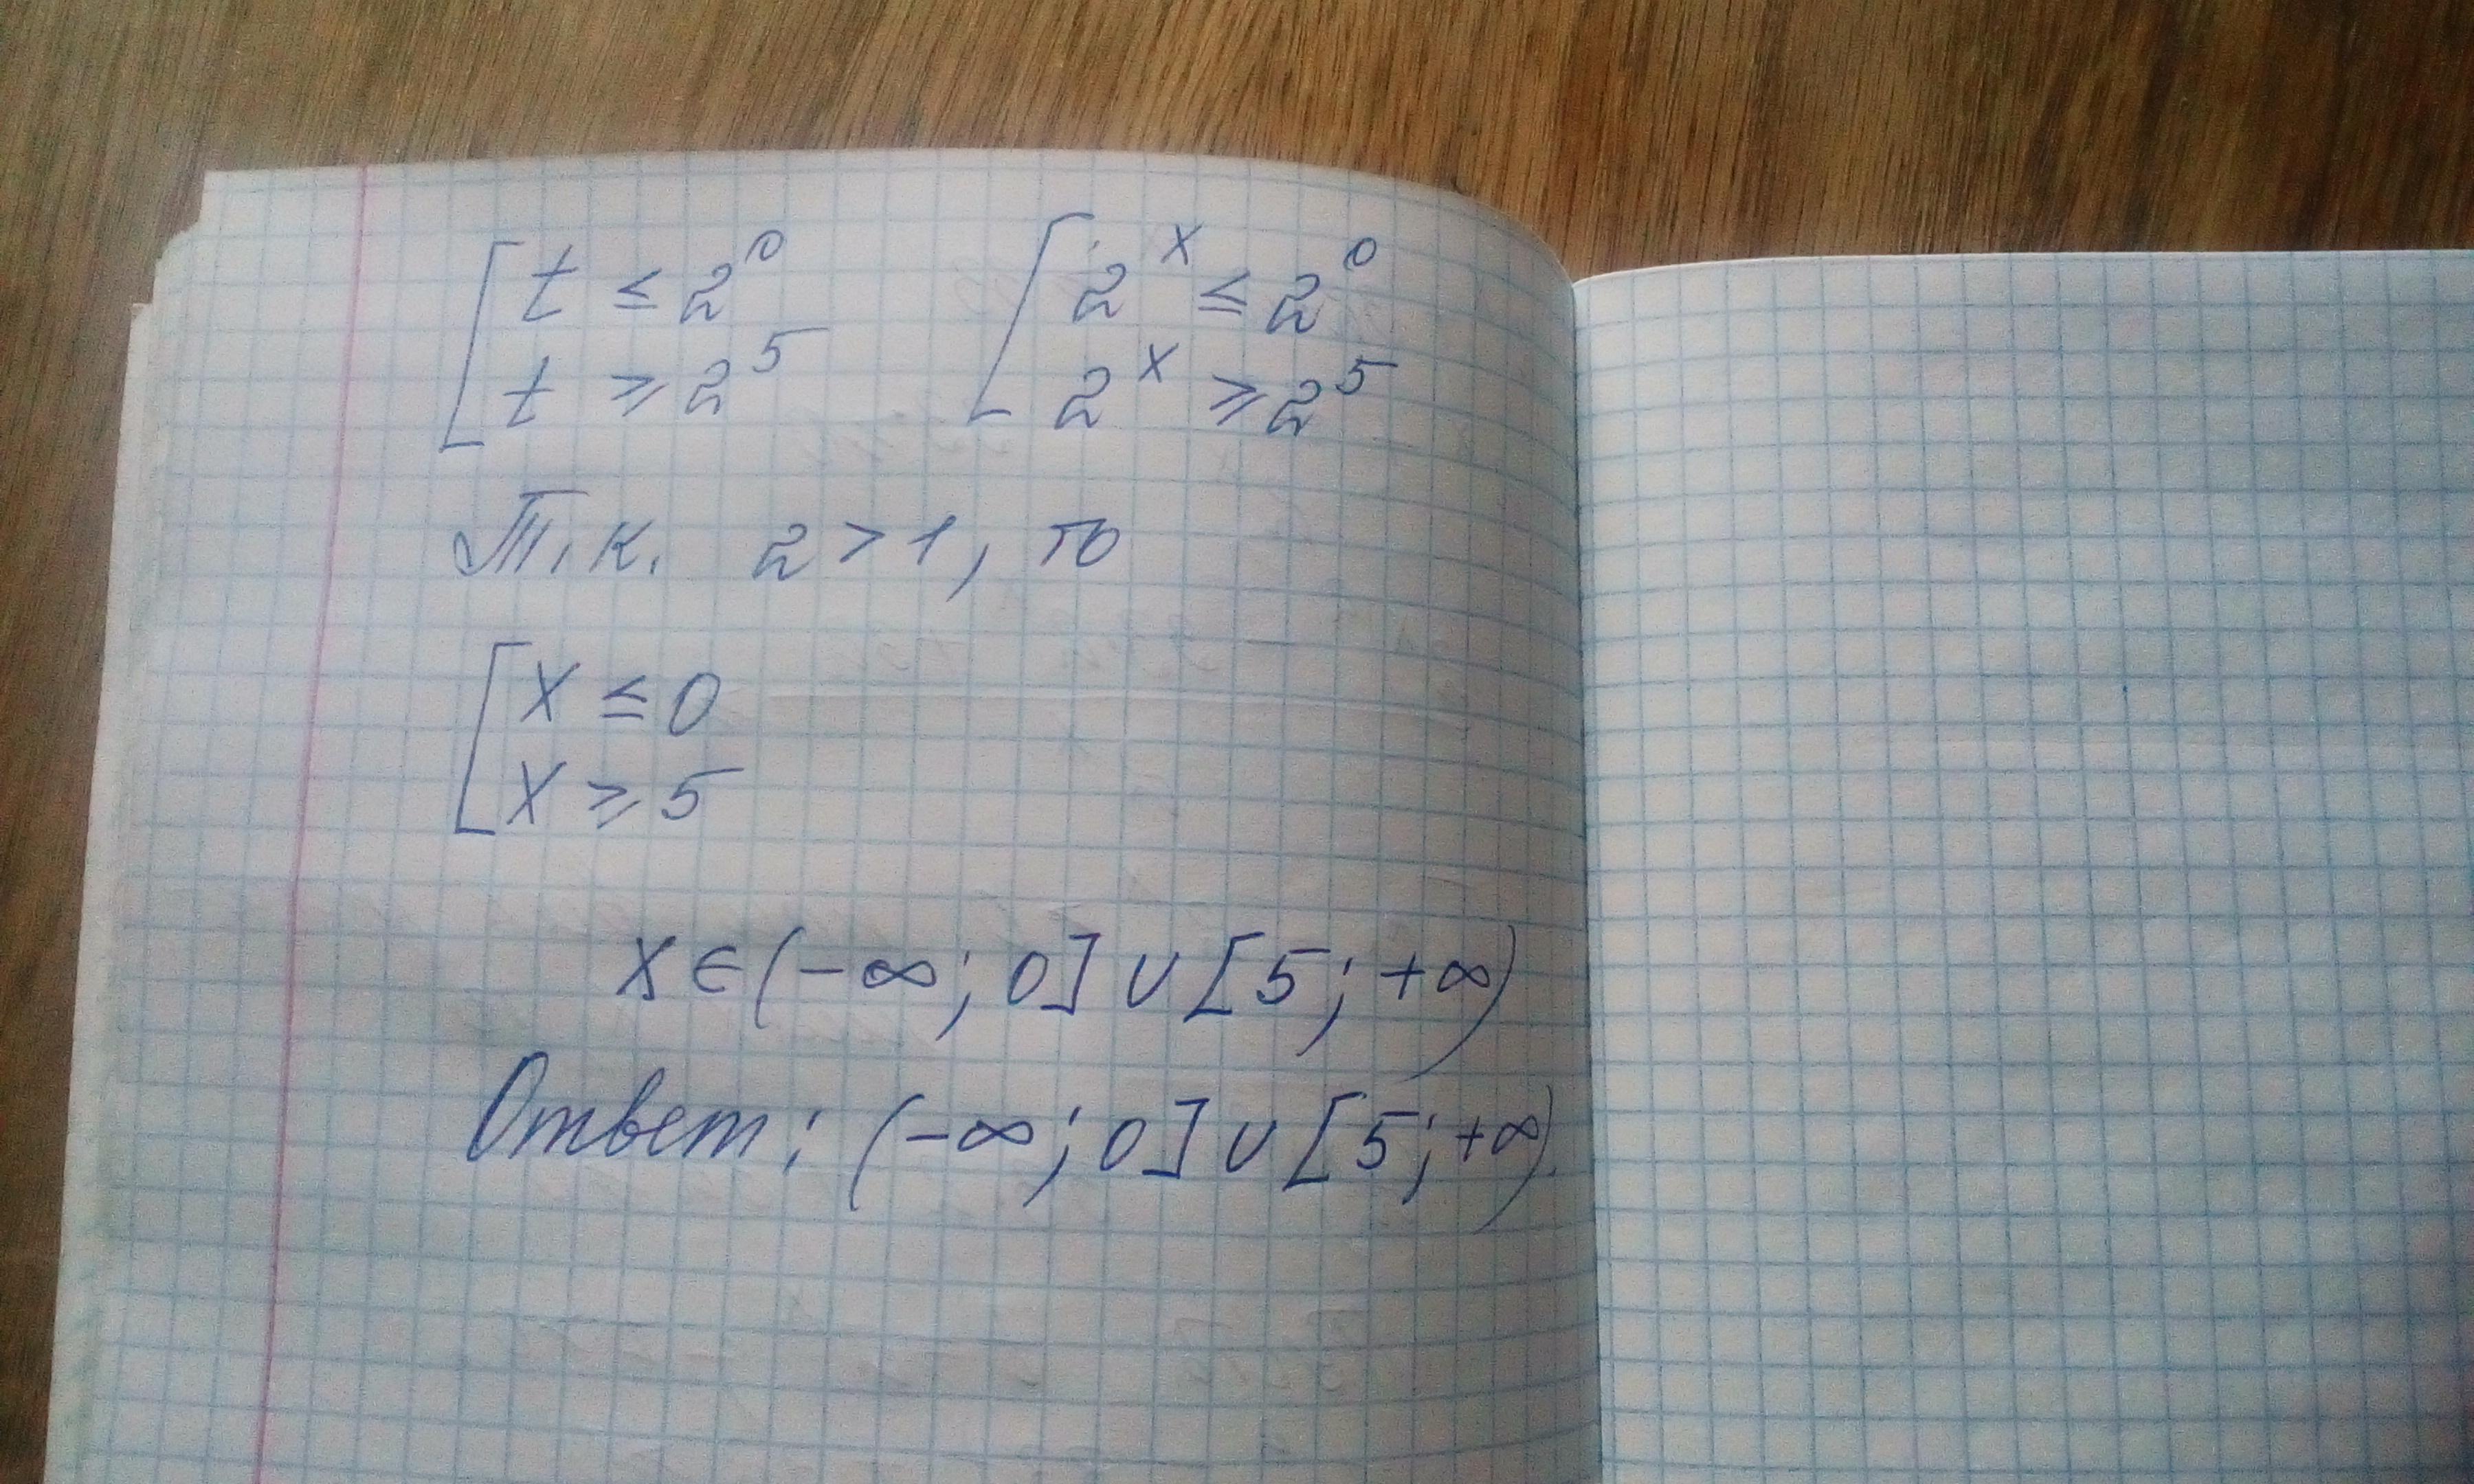 [ t ≤ 2⁰ [ 2ˣ ≤ 2⁰
t ≥ 2⁵ 2ˣ ≥ 2⁵
Т.к. 2 > 1, то
[ x ≤ 0
x ≥ 5
x ∈ (-∞; 0] ∪ [5; +∞)
Ответ: (-∞; 0] ∪ [5; +∞).